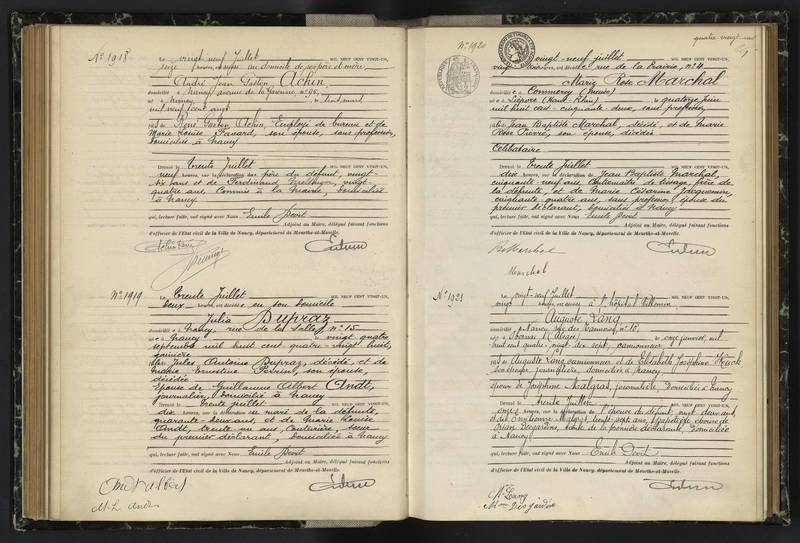 N° 1918
Le vingt neuf Juillet MIL NEUF CENT VINGT-UN,
seize heures, est décédé au domicile de ses père et mère,
André Jean Gaston Achin
domicilié à Nancy, avenue de la Garenne, n° 95,
né à Nancy, le huit mars
mil neuf cent vingt
fils de René Gaston Achin, Employé de bureau et de
Marie Louise Pavard, son épouse, sans profession,
domiciliés à Nancy
Dressé le trente Juillet MIL NEUF CENT VINGT-UN,
neuf heures, sur la déclaration du père du défunt, vingt-
six ans et de Ferdinand vingt-
quatre ans, Commis à la Mairie, domiciliés
à Nancy
qui, lecture faite, ont signé avec Nous Emile Devit
Adjoint au Maire, délégué faisant fonctions
d'officier de l'Etat civil de la Ville de Nancy, département de Meurthe-et-Moselle.
N° 1919
Le trente Juillet MIL NEUF CENT VINGT-UN,
deux heures, est décédée en son domicile
Julia Dupraz
domiciliée à Nancy, rue de la Salle, n° 15
née à Nancy le vingt quatre
septembre mil huit cent quatre-vingt huit,
fille Jules Antoine Dupraz, décédé, et de
Marie Ernestine son épouse,
décédée
Epouse de Guillaume Albert Andt,
journalier, domicilié à Nancy
Dressé le trente juillet MIL NEUF CENT VINGT-UN,
dix heures, sur la déclaration du mari de la défunte,
quarante-deux ans, et de Marie Louise
Andt, trente un ans Couturière, soeur
du premier déclarant, domiciliés à Nancy
qui, lecture faite, ont signé avec Nous Emile Devit
Adjoint au Maire, délégué faisant fonctions
d'officier de l'Etat civil de la Ville de Nancy, département de Meurthe-et-Moselle.
M. L. Andt
quatre vingt un
N° 1920
vingt-neuf juillet MIL NEUF CENT VINGT-UN,
vingt heures, est décédée rue de la Prairie, n° 4
Marie Rose Marchal
domiciliée à Commercy (Meuse)
née à Lièpvre (Haut-Rhin) le quatorze juin
mil huit cent cinquante deux, sans profession,
fille Jean Baptiste Marchal, décédé, et de Marie
Rose Pierré, son épouse, décédée
Célibataire
Dressé le trente Juillet MIL NEUF CENT VINGT-UN,
dix heures, sur la déclaration de Jean Baptiste Marchal,
cinquante neuf ans, Contremaître de tissage, frère de
la défunte, et de Marie Césarine Jacquemin,
cinquante quatre ans, sans profession, épouse du
premier déclarant, domiciliés à Nancy
qui, lecture faite, ont signé avec Nous Emile Devit
Adjoint au Maire, délégué faisant fonctions
d'officier de l'Etat civil de la Ville de Nancy, département de Meurthe-et-Moselle.
Marchal
Marchal
N° 1921
Le vingt-neuf Juillet MIL NEUF CENT VINGT-UN,
vingt heures, est décédé à l'hôpital Villemin,
Auguste Lang
domicilié à Nancy rue des Tanneries, n° 10
né à (Alger) le onze janvier, mil
huit cent quatre-vingt dix sept, camionneur
fils Auguste Lang, camionneur et de Elisabeth Joséphine Houck
son épouse, journalière, domiciliés à Nancy
époux de Joséphine Malgras, journalière, domiciliée à Nancy
Dressé le trente Juillet MIL NEUF CENT VINGT-UN,
onze heures, sur la déclaration de l'épouse du défunt, vingt deux ans,
et de Malgras, trente sept ans, épouse de
Desjardins, tante de la première déclarante, domiciliées
à Nancy
qui, lecture faite, ont signé avec Nous Emile Devit
Adjoint au Maire, délégué faisant fonctions
d'officier de l'Etat civil de la Ville de Nancy, département de Meurthe-et-Moselle.
Lang
Mme Desjardin